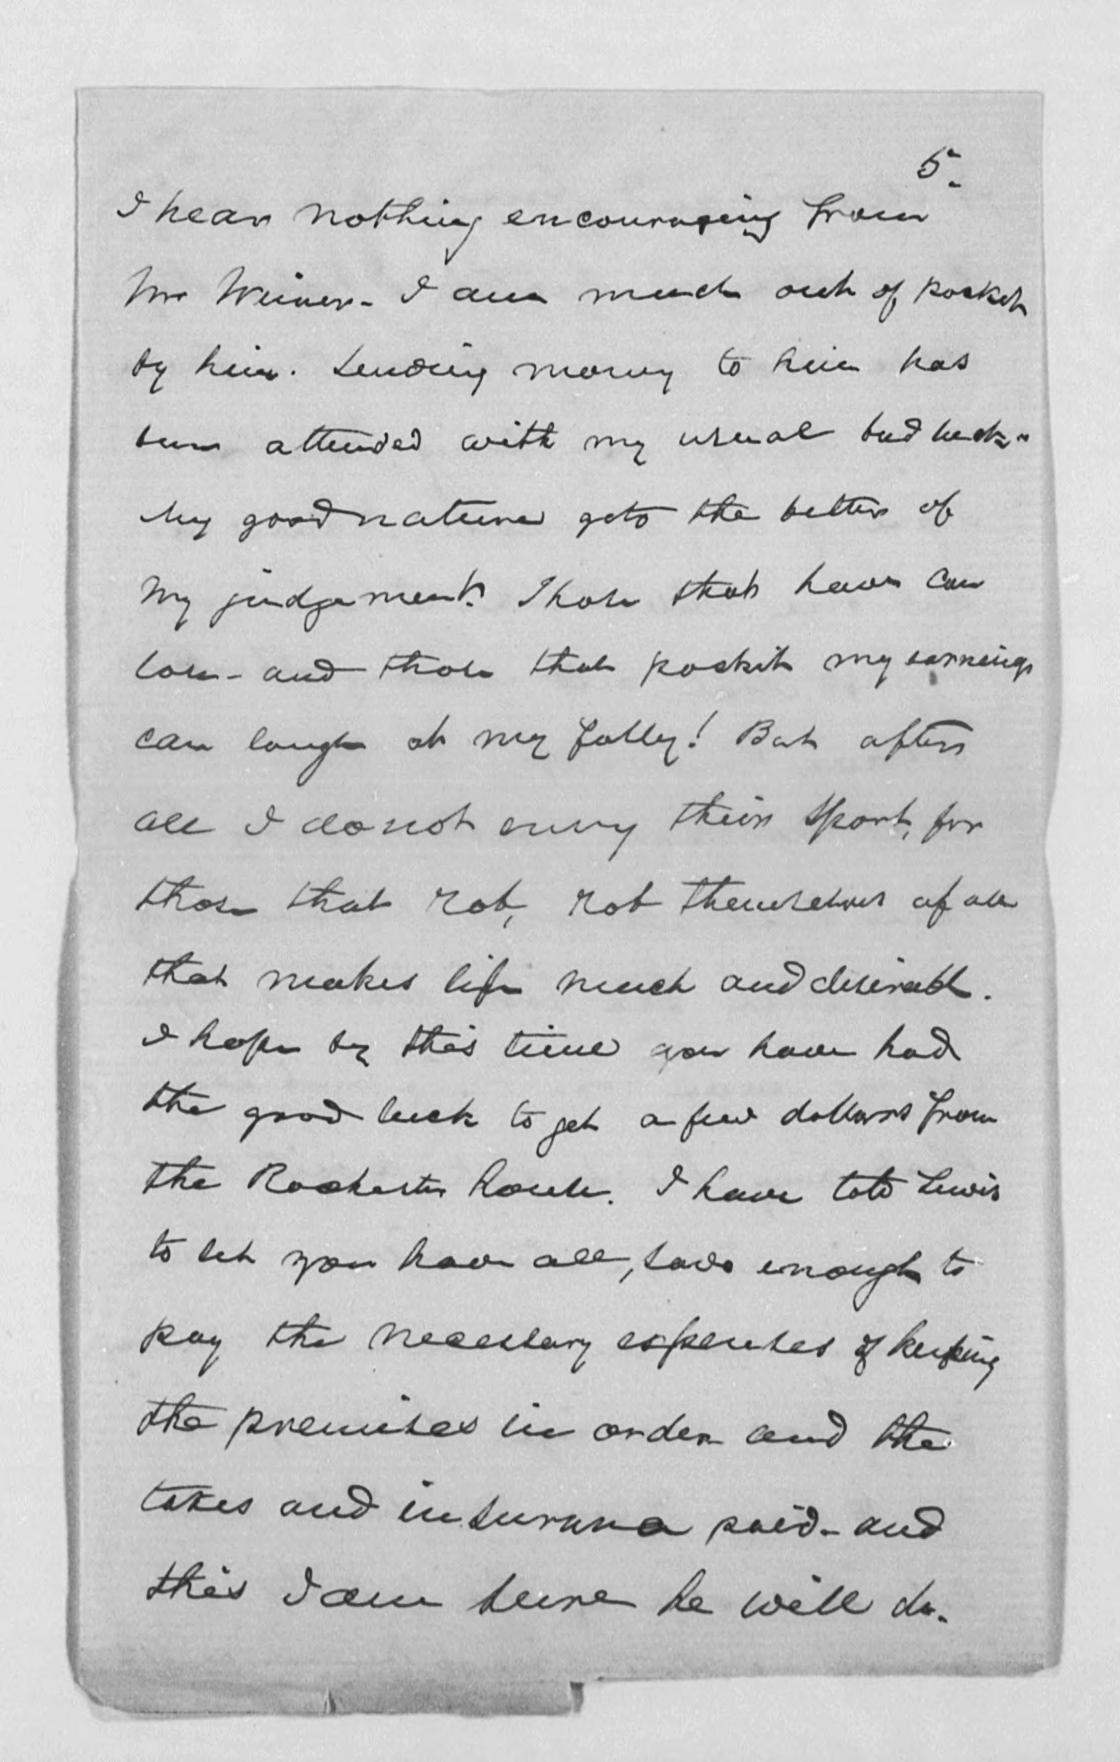 5.
I hear nothing encouraging from
Mr Weiner - I am much out of pocket
by him. Lending money to him has
been attended with my usual bad luck -
My good nature gets the better of
my judgement. Those that have can
lose - and those that pocket my earnings
can laugh at my folly! But after
all I do not envy their sport, for
those that rob, rob themselves of all
that makes life much and desirable.
I hope by this time you have had
the good luck to get a few dollars from
the Rochester house. I have told Lewis
to let you have all, save enough to
pay the necessary expenses of keeping
the premises in order and the
taxes and insurance paid - and
this I am sure he will do.